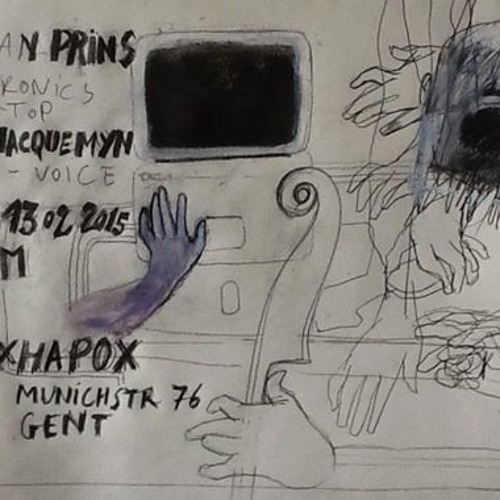 AN PRINS
RONICS
TOP
JACQUEMYN
- VOICE
13 02 2015
M
XHAPOX
MUNICHSTR 76
GENT